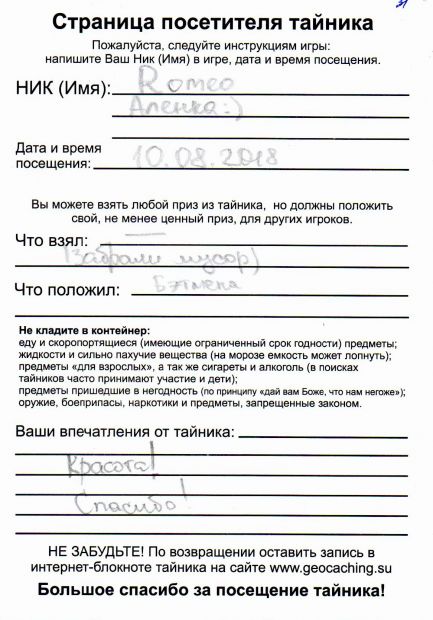 31
Страница посетителя тайника
Пожалуйста, следуйте инструкциям игры:
напишите Ваш Ник (Имя) в игре, дата и время посещения.
НИК (Имя): Romeo
Аленка:)
Дата и время
посещения: 10.08.2018
Вы можете взять любой приз из тайника, но должны положить
свой, не менее ценный приз, для других игроков.
Что взял: —
(Забрали мусор)
Что положил: Бэтмена
Не кладите в контейнер:
еду и скоропортящиеся (имеющие ограниченный срок годности) предметы;
жидкости и сильно пахучие вещества (на морозе емкость может лопнуть);
предметы «для взрослых», а так же сигареты и алкоголь (в поисках
тайников часто принимают участие и дети);
предметы пришедшие в негодность (по принципу «дай вам Боже, что нам негоже»);
оружие, боеприпасы, наркотики и предметы, запрещенные законом.
Ваши впечатления от тайника:
Красота!
Спасибо!
НЕ ЗАБУДЬТЕ! По возвращении оставить запись в
интернет-блокноте тайника на сайте www.geocaching.su
Большое спасибо за посещение тайника!